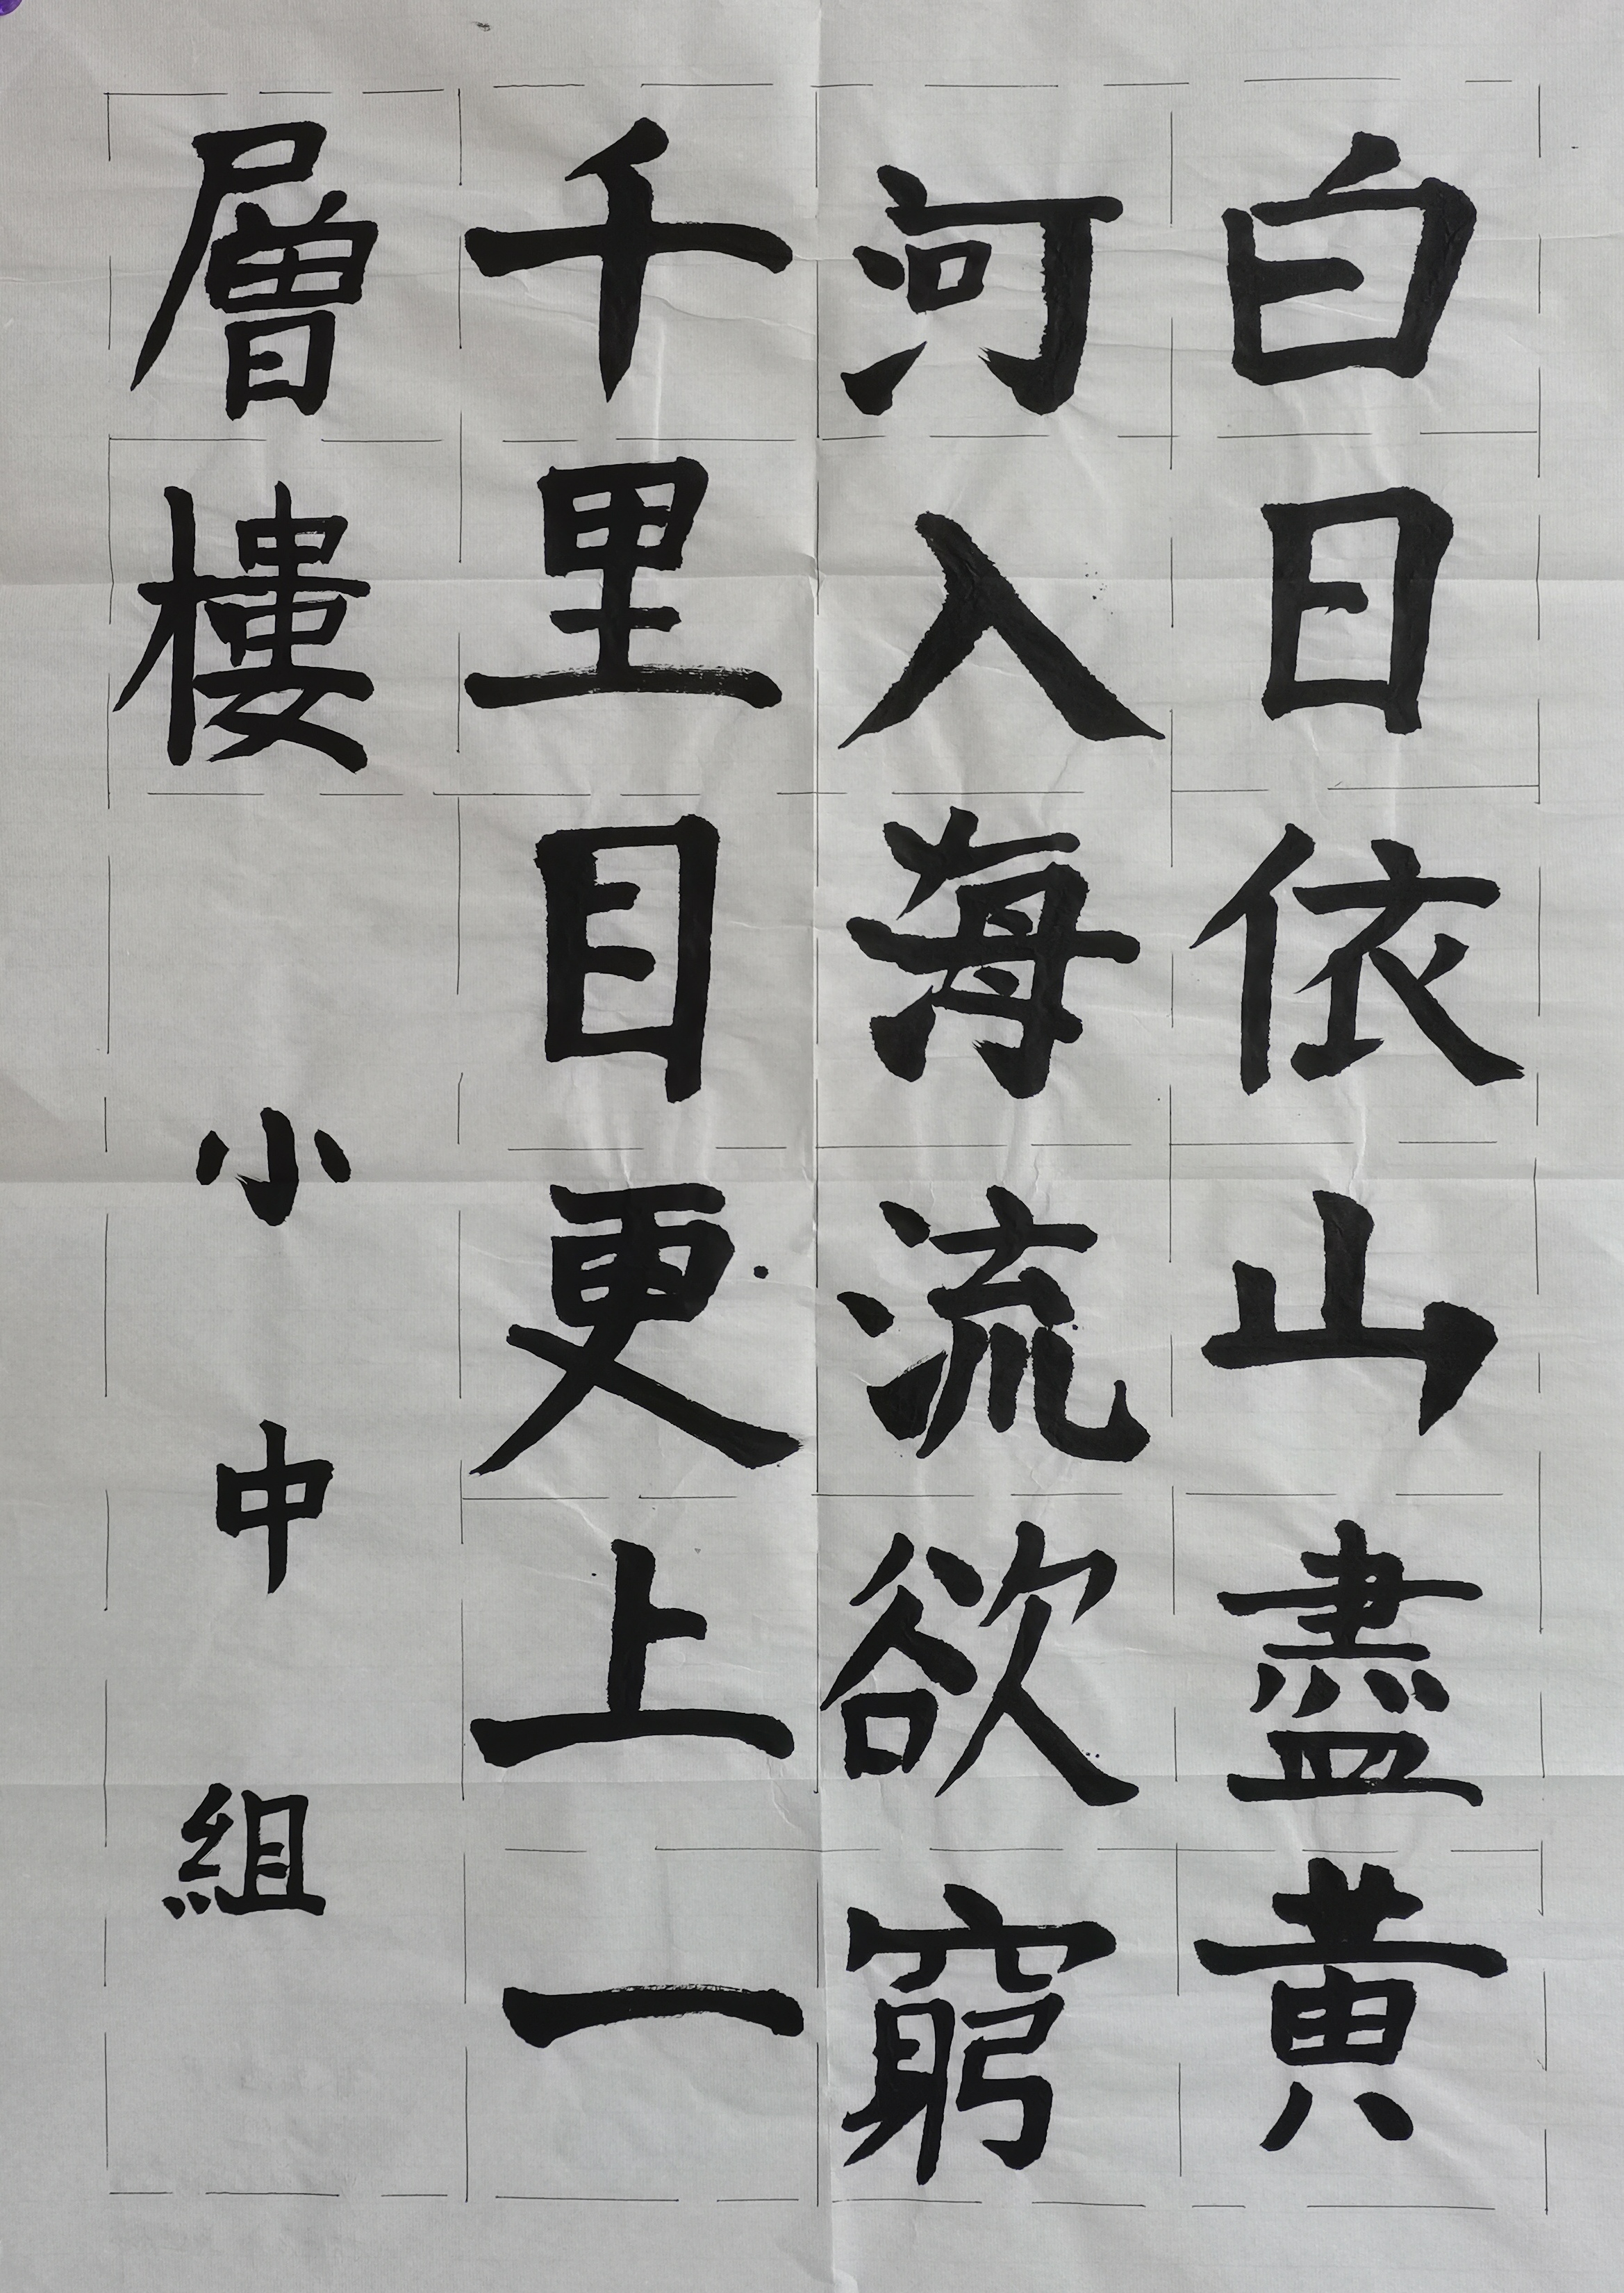 白日依山盡黃
河入海流欲窮
千里目更上一
層樓
小中組